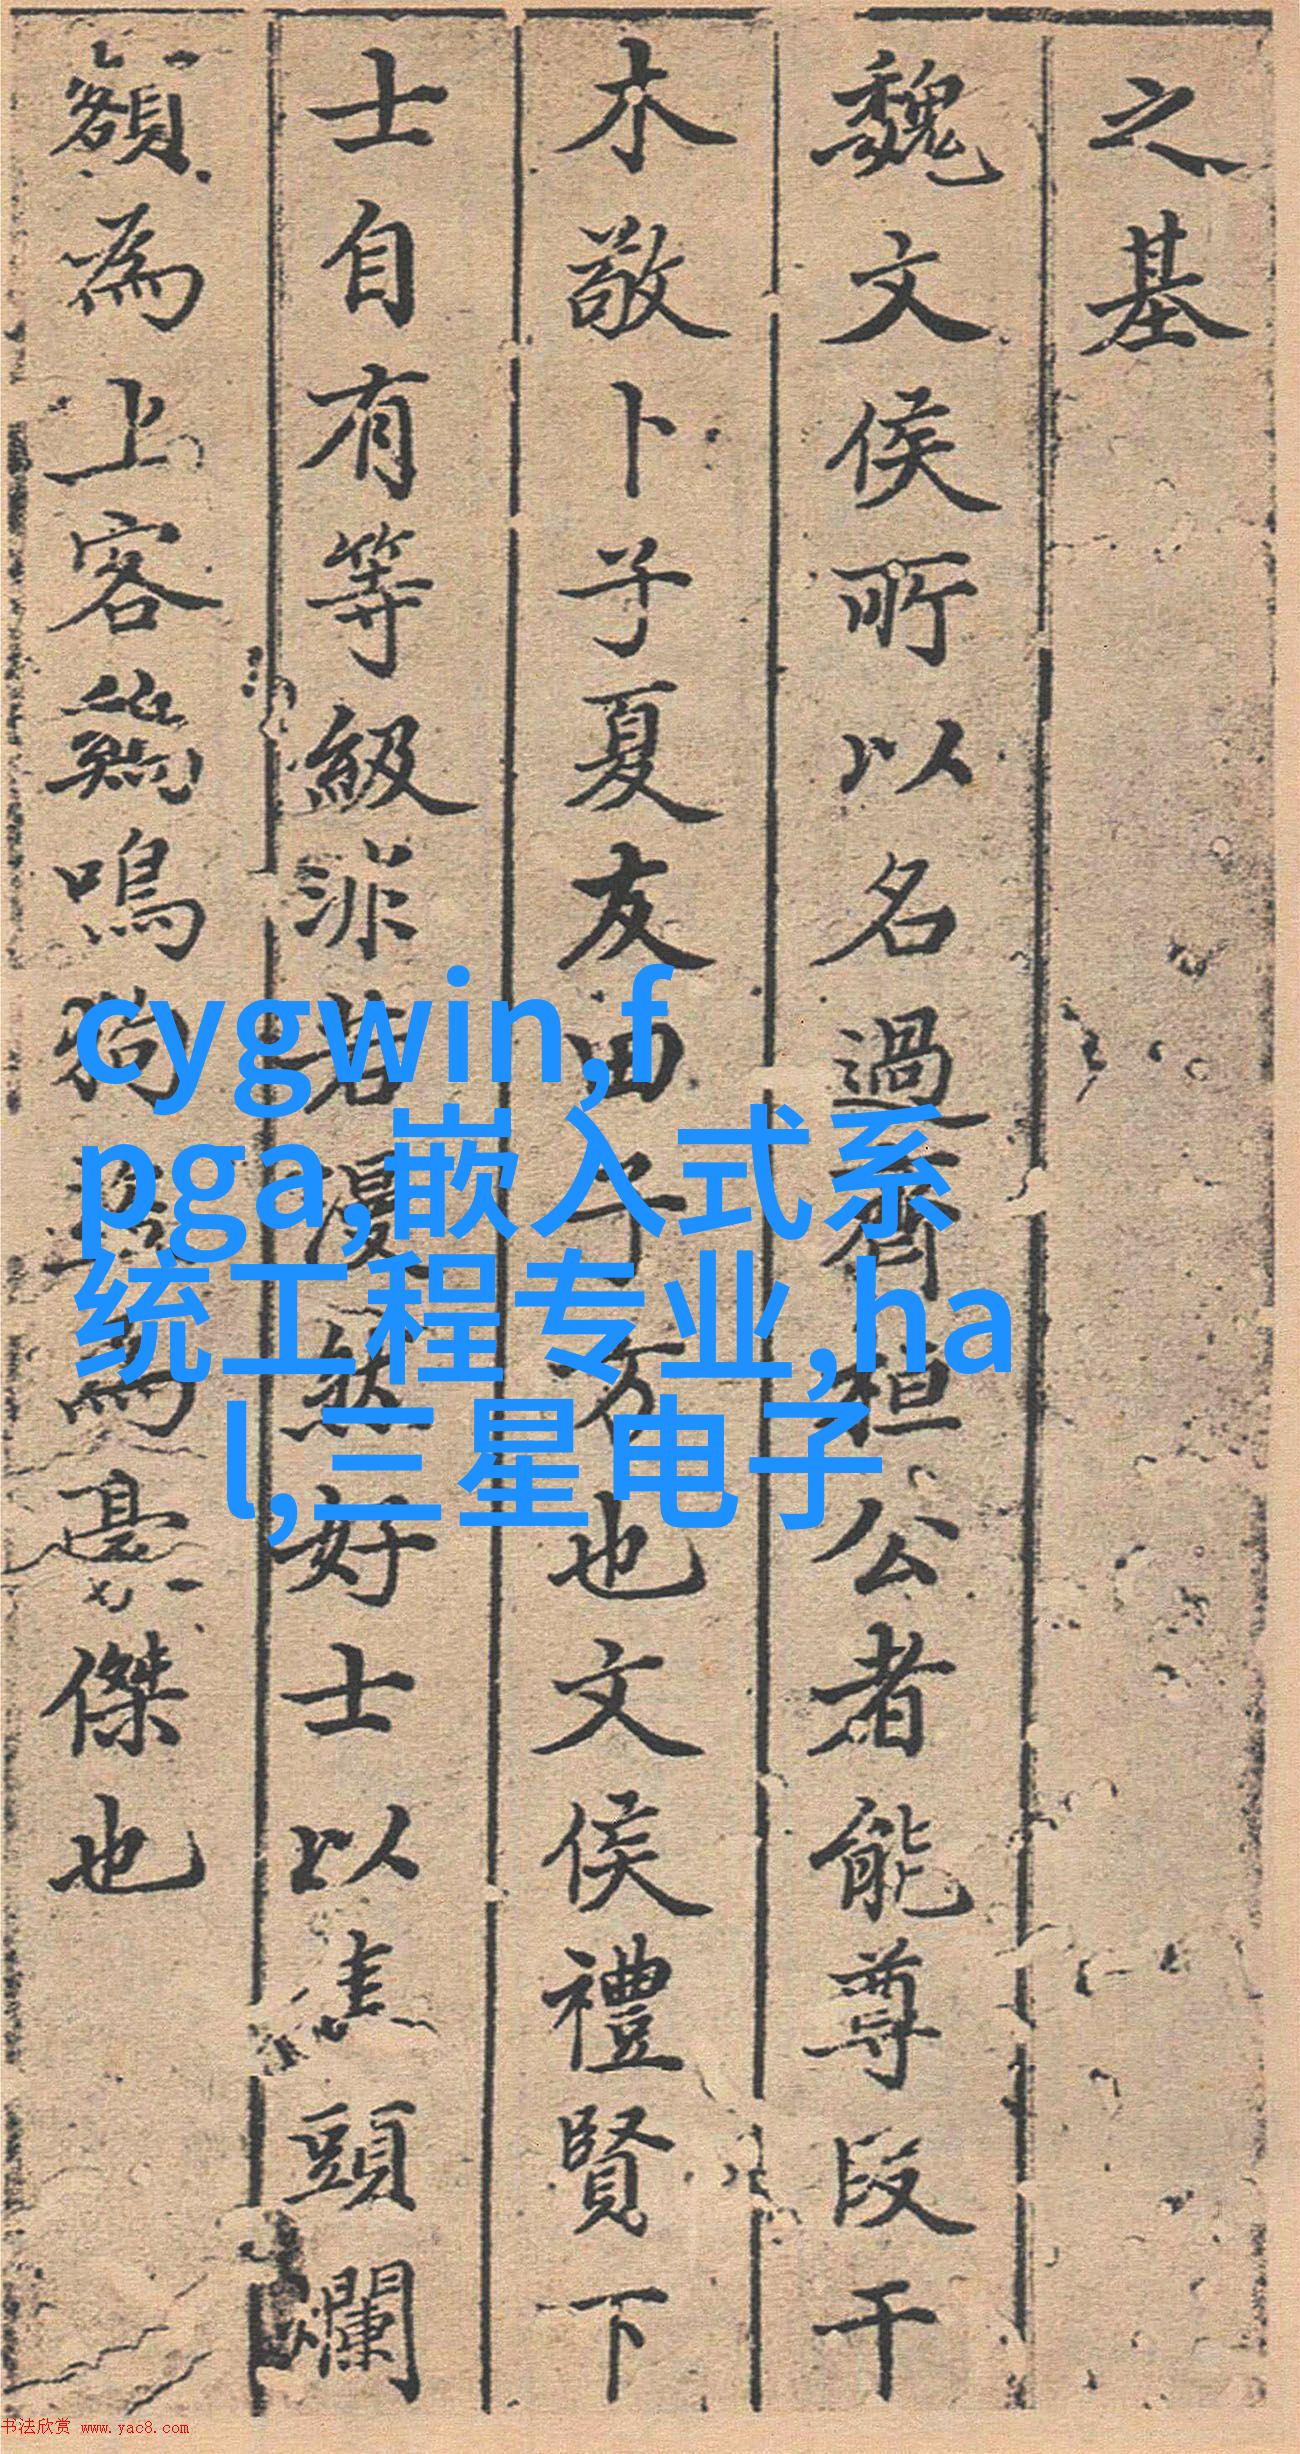 之基
魏文侯所以名過齊桓公者能尊段干
木敬卜子夏友田子方也文侯禮賢下
士自有等級非若漫然好士以焦頭爛
額為上客雞鳴狗盜為豪傑也
cygwin,f
pga,嵌入式系
统工程专业,ha
l,三星电子
书法欣赏 www.yac8.com